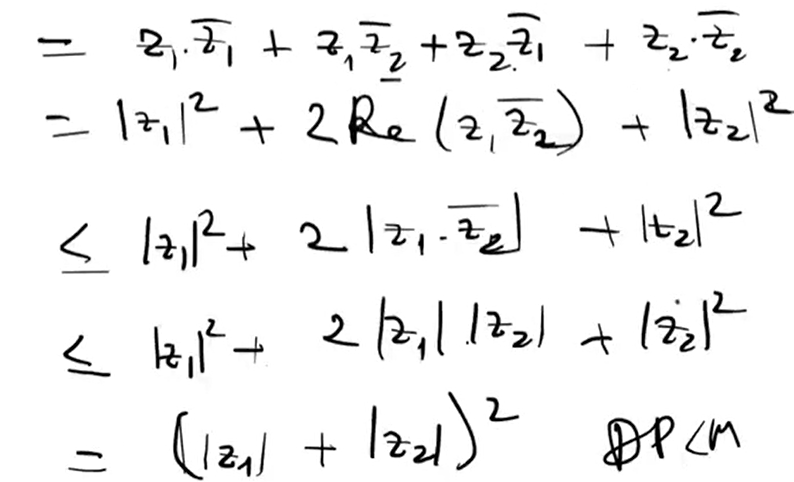 = z₁.z̅₁ + z₁z̅₂ + z₂.z̅₁ + z₂.z̅₂
= |z₁|² + 2Re (z₁z̅₂) + |z₂|²
≤ |z₁|² + 2 |z₁.z̅₂| + |z₂|²
≤ |z₁|² + 2 |z₁| .|z₂| + |z₂|²
= (|z₁| + |z₂|)²